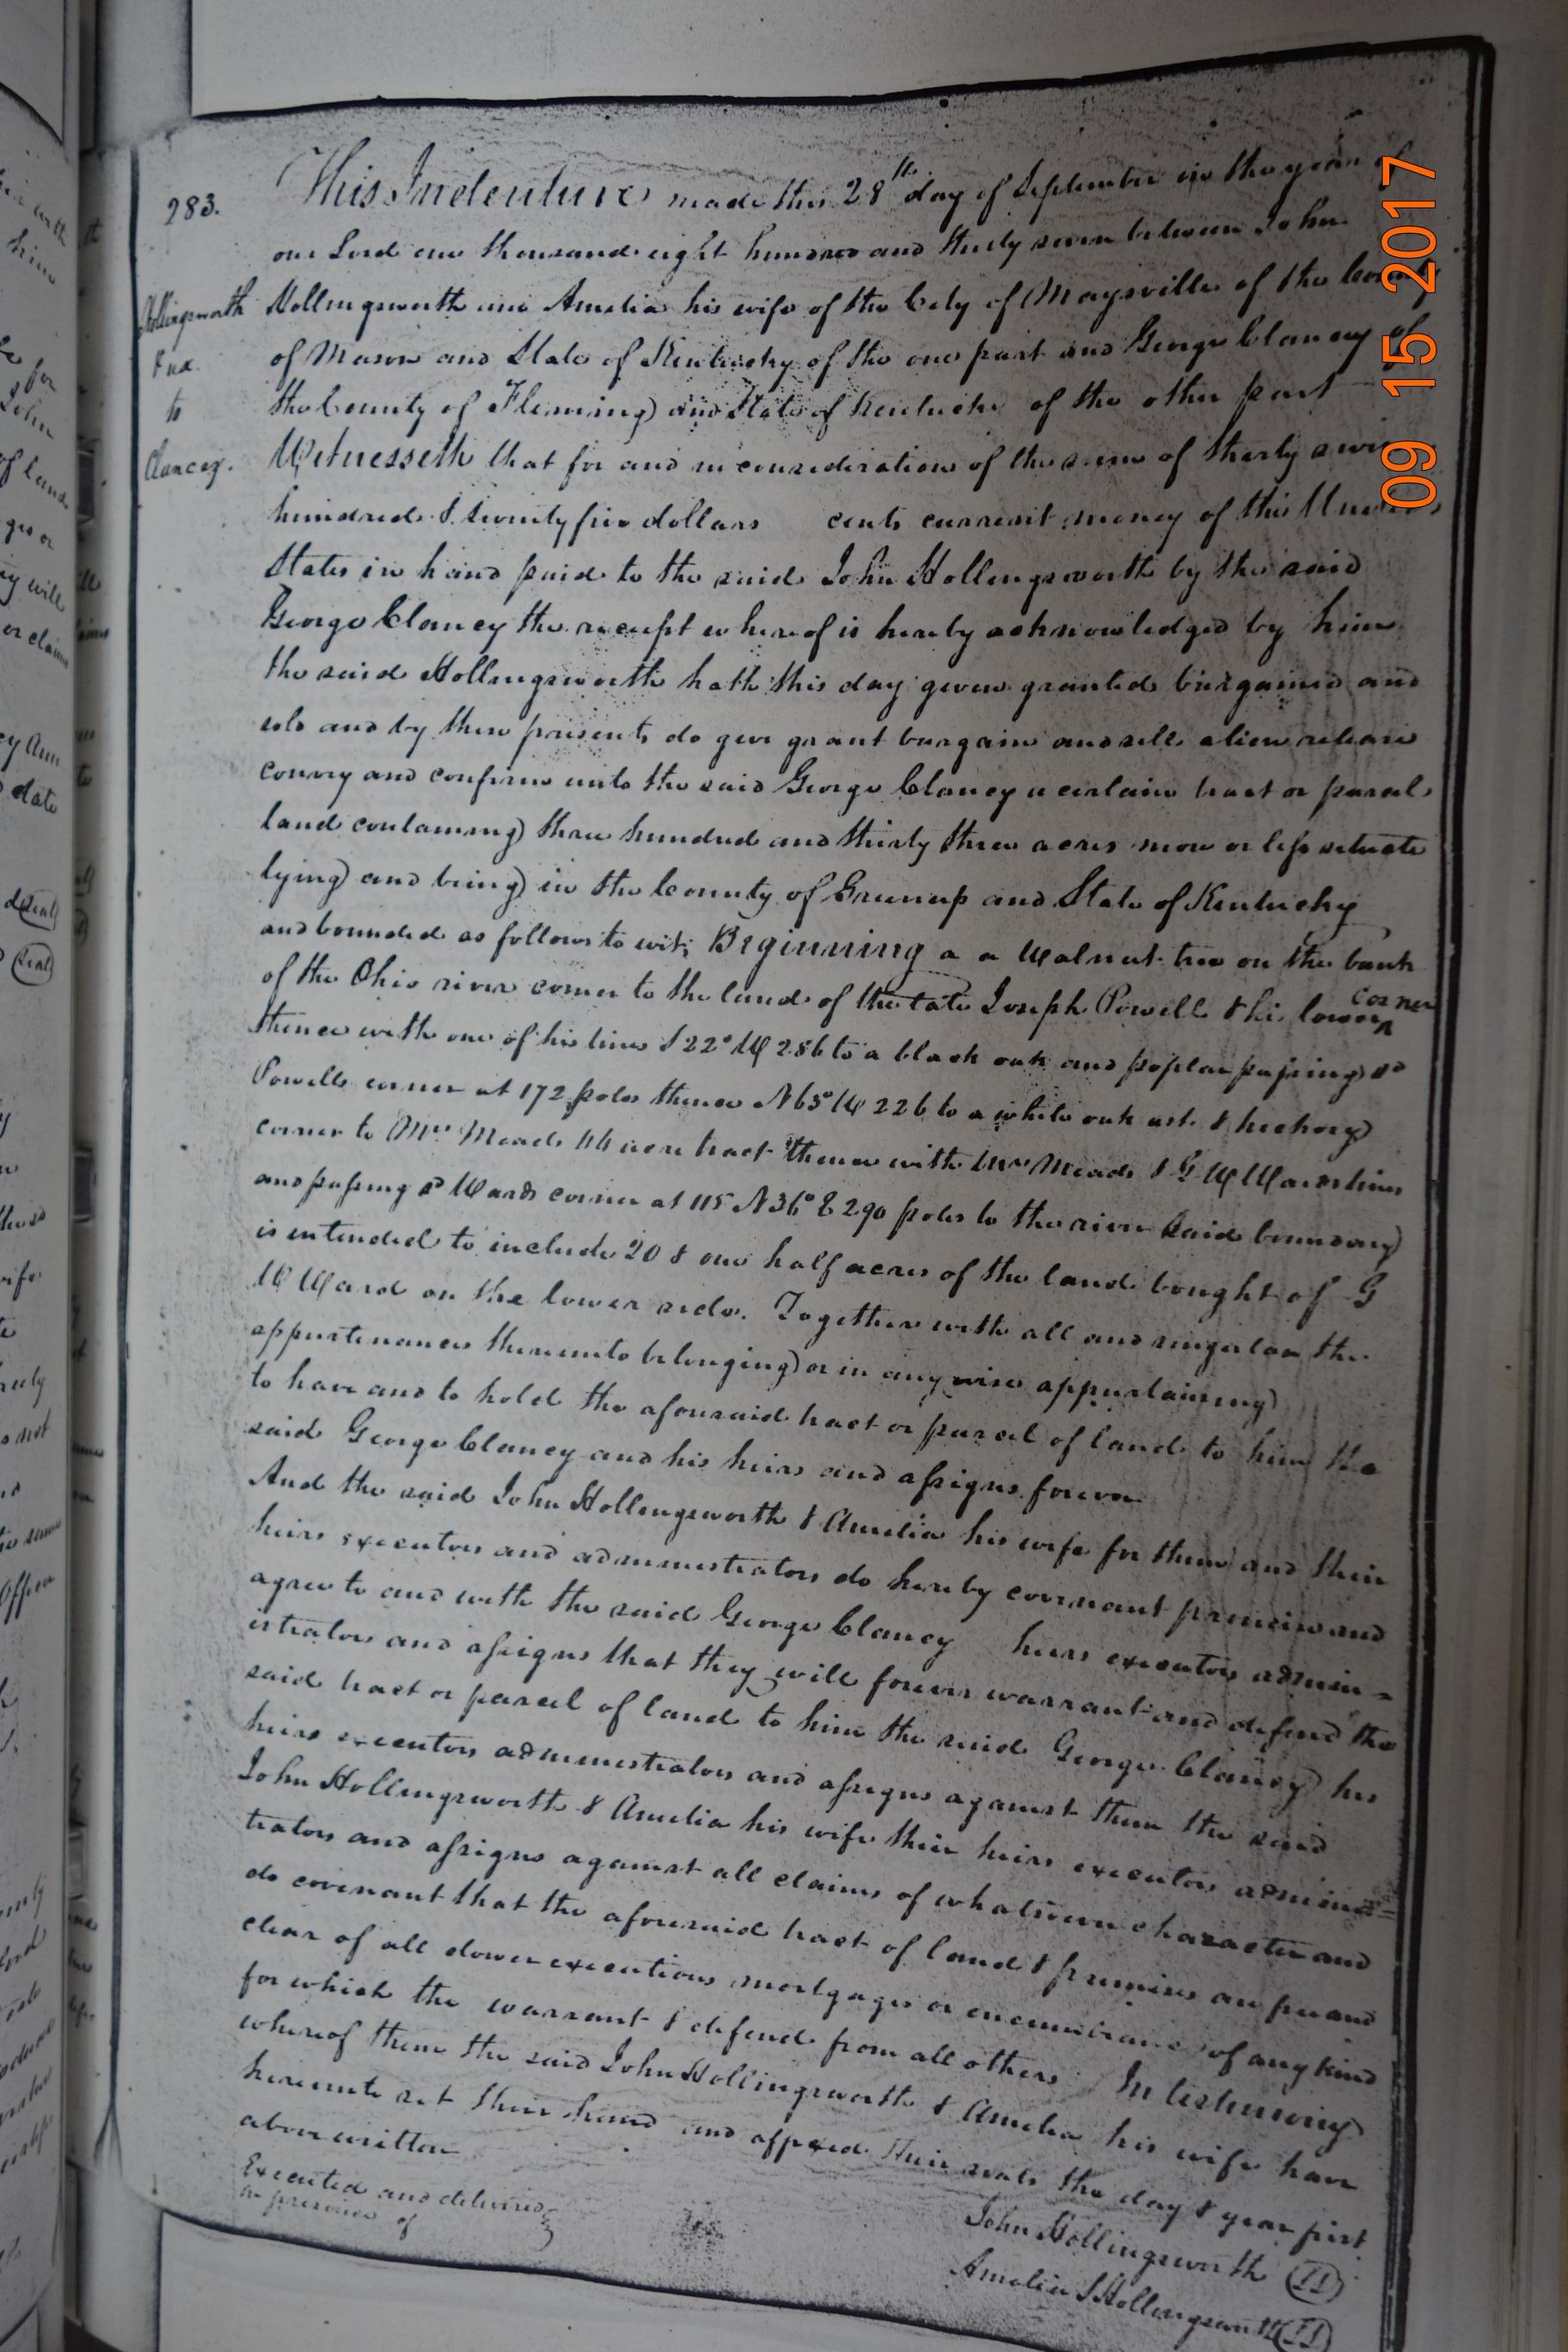 283.
Hollingsworth
&ux.
to
Clancey.
This Indenture made this 28th day of September in the year of
our Lord one thousand eight hundred and thirty seven between John
Hollingsworth and Amelia his wife of the City of Maysville of the County
of Mason and State of Kentucky of the one part and George Clancey of
the County of Fleming and State of Kentucky of the other part
Witnesseth that for and in consideration of the sum of thirty
hundred & twenty five dollars cents current money of this United
States in hand paid to the said John Hollingsworth by the said
George Clancey the receipt whereof is hereby acknowledged by him
the said Hollingsworth hath this day given granted bargained and
sold and by these presents do give grant bargain and sell alien release
convey and confirm unto the said George Clancey a certain tract or parcel
land containing three hundred and thirty three acres more or less situate
lying and being in the County of Greenup and State of Kentucky
and bounded as follows to wit; Beginning a a Walnut tree on the bank
of the Ohio river corner to the land of the late Joseph Powell & his lower corner
thence with one of his lines S 22° W 286 to a black oak and poplar passing sd
Powells corner at 172 poles thence N 63° W 226 to a white oak ash & hickory
corner to Mrs Meads 44 acre tract thence with Mrs Meads & G W Wards lines
and passing sd Wards corner at 115 N 36° E 290 poles to the river said boundary
is intended to include 20 & one half acres of the land bought of G
W Ward on the lower side. Together with all and singular the
appurtenances thereunto belonging or in any wise appertaining
to have and to hold the aforesaid tract or parcel of land to him the
said George Clancey and his heirs and assigns forever
And the said John Hollingsworth & Amelia his wife for them and their
heirs executors and administrators do hereby covenant promise and
agree to and with the said George Clancey heirs executors admin=
istrators and assigns that they will forever warrant and defend the
said tract or parcel of land to him the said George Clancey his
heirs executors administrators and assigns against them the said
John Hollingsworth & Amelia his wife their heirs executors adminis=
trators and assigns against all claims of whatsoever character and
do covenant that the aforesaid tract of land & premises are free and
clear of all dower executions mortgages or encumbrance of any kind
for which the warrant & defend from all others In testimony
whereof them the said John Hollingsworth & Amelia his wife have
hereunto set their hand and affixed their seals the day & year first
above written
Executed and delivered
in presence of
John Hollingsworth
Amelia S Hollingsworth
09 15 2017